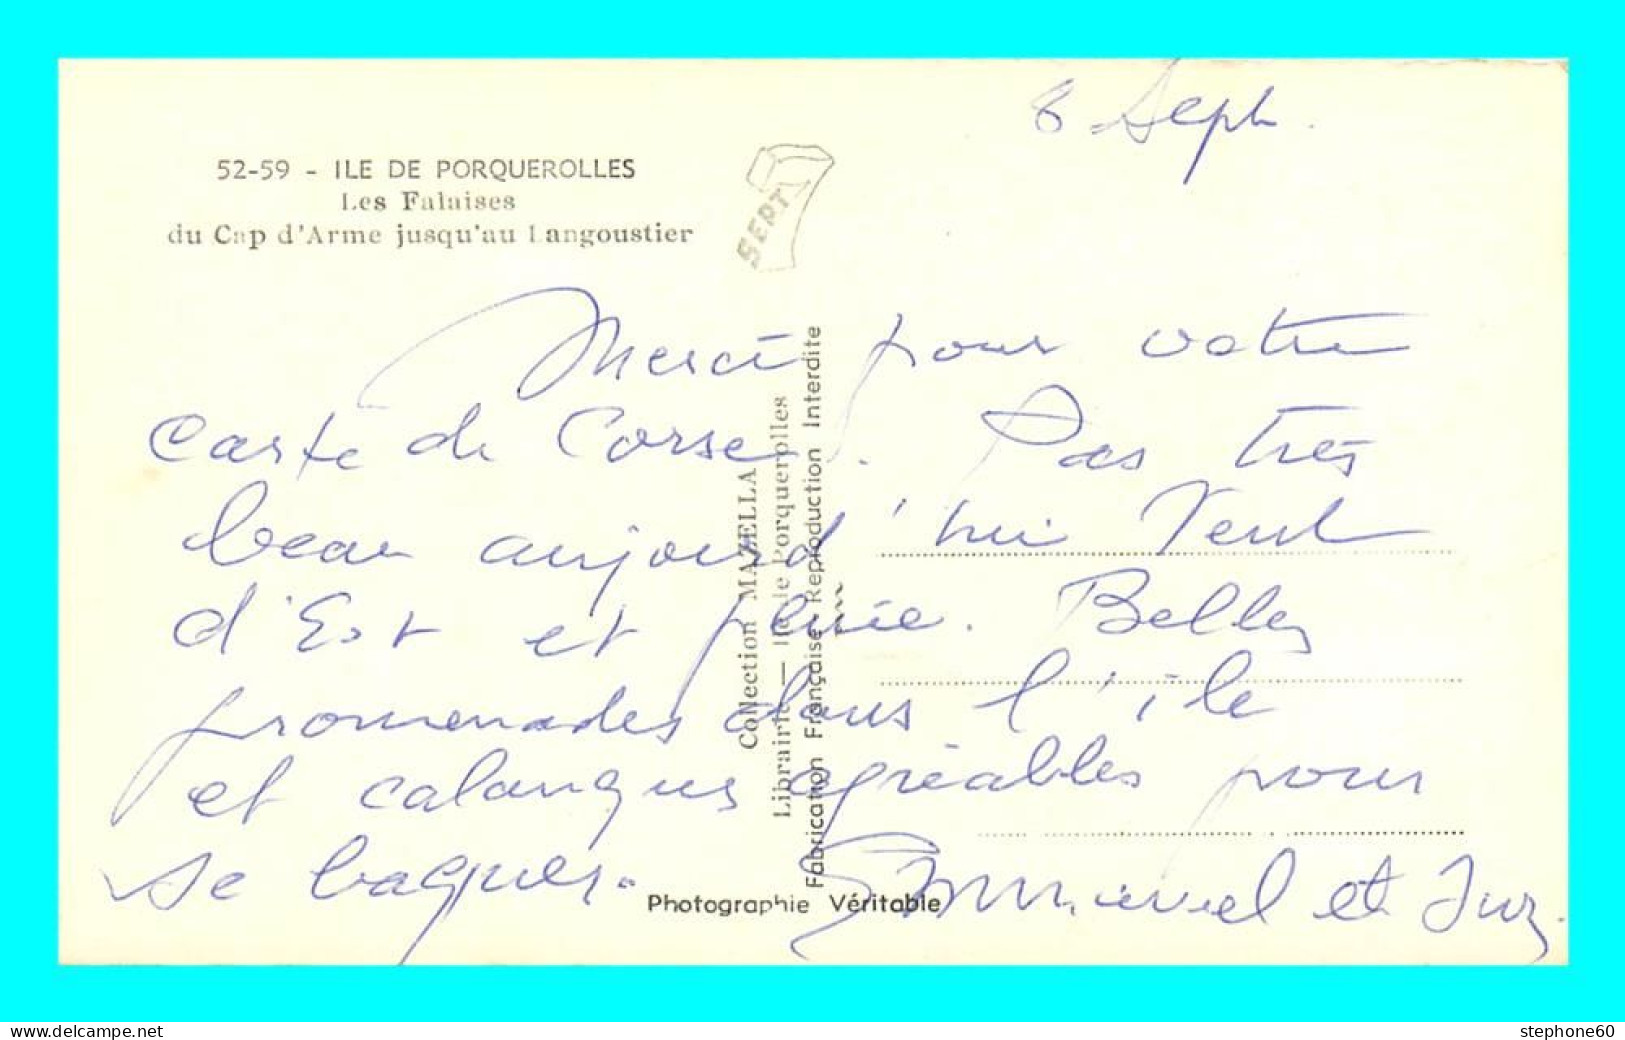 8 Sept.
52-59 - ILE DE PORQUEROLLES
Les Falaises
du Cap d'Arme jusqu'au Langoustier
SEPT
Merci pour votre
carte de Corse. Pas très
beau aujourd'hui Vent
d'Est et pluie. Belles
promenades dans l'île
et calanques agréables pour
se baigner.
Emmanuel et
Collection MAZELLA
Librairie — Ile de Porquerolles
Fabrication Française - Reproduction Interdite
Photographie Véritable
www.delcampe.net
stephone60